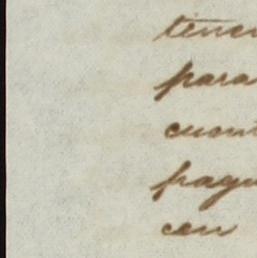 tener
para
cuent
pagu
con